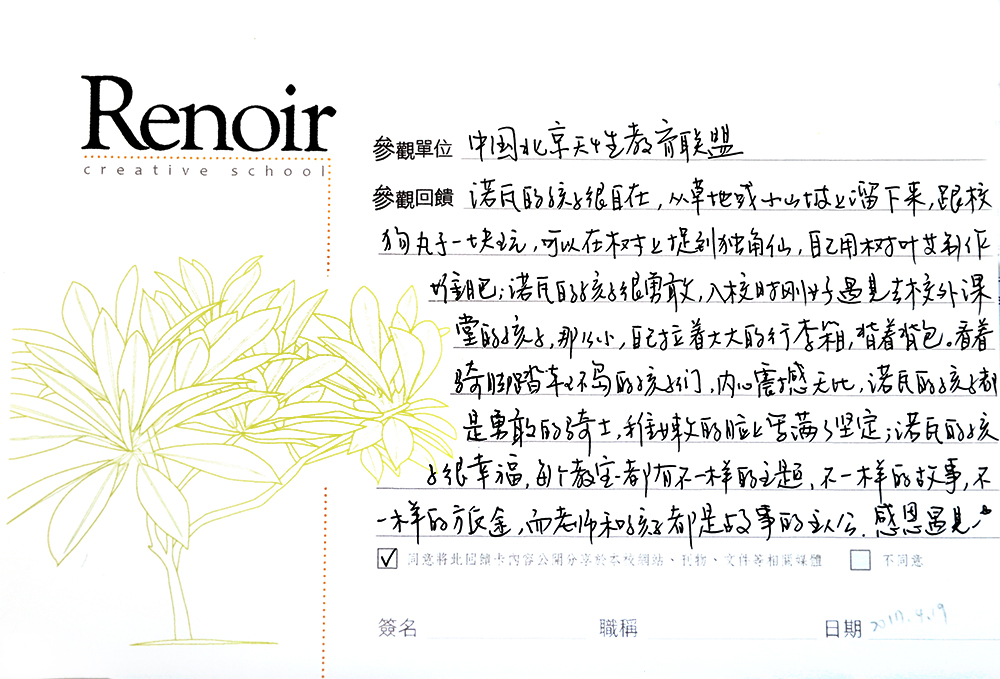 Renoir
creative school
參觀單位 中国北京天生教育联盟
參觀回饋 诺瓦的孩子很自在，从草地或小山坡上溜下来，跟校
狗丸子一块玩，可以在树上捉到独角仙，自己用树叶艾制作
堆肥；诺瓦的孩子很勇敢，入校时刚好遇見去校外课
堂的孩子，那么小，自己拉着大大的行李箱，背着背包。看着
骑脚踏车环岛的孩子们，内心震撼无比，诺瓦的孩子都
是勇敢的骑士，稚嫩的脸上写满了坚定；诺瓦的孩
子很幸福，每个教室都有不一样的主题，不一样的故事，不
一样的旅途，而老师和孩子都是故事的主人公，感恩遇見
✓ 同意將此回饋卡內容公開分享於本校網站、刊物、文件等相關媒體 不同意
簽名 職稱 日期 2017.4.19